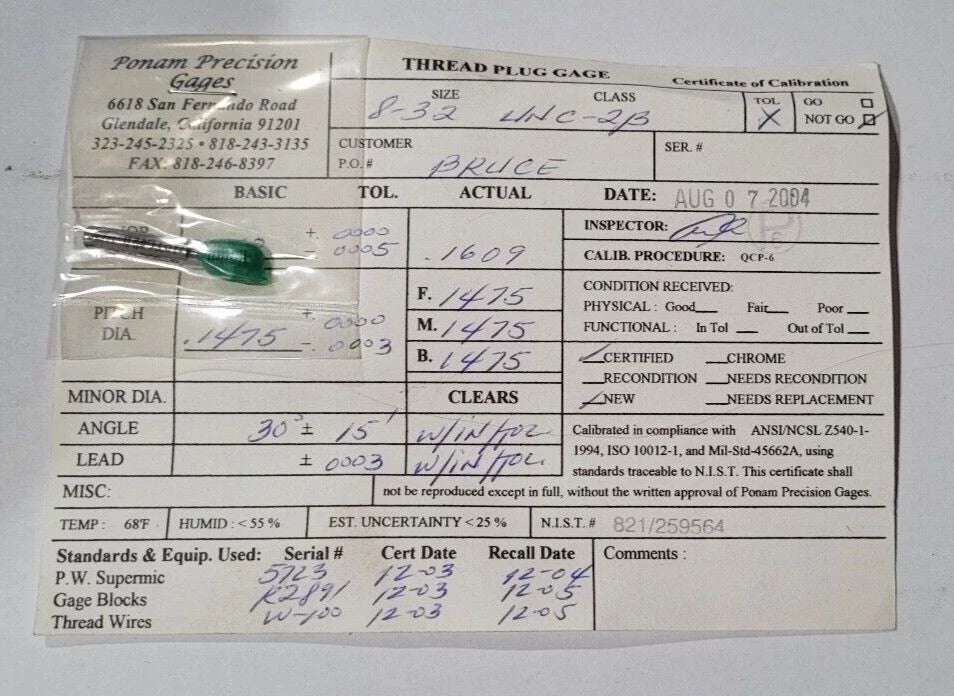 Ponam Precision
Gages
6618 San Fernando Road
Glendale, California 91201
323-245-2325 • 818-243-3135
FAX: 818-246-8397
THREAD PLUG GAGE
Certificate of Calibration
SIZE
8-32
CLASS
UNC-2B
TOL
X
GO
NOT GO
CUSTOMER
P.O. #
BRUCE
SER. #
BASIC TOL. ACTUAL
DATE: AUG 07 2004
+. 0000
-. 0005
.1609
INSPECTOR:
CALIB. PROCEDURE: QCP-6
PITCH
DIA.
.1475
+. 0000
-. 0003
F. .1475
M. .1475
B. .1475
CONDITION RECEIVED:
PHYSICAL : Good Fair Poor
FUNCTIONAL : In Tol Out of Tol
CERTIFIED CHROME
RECONDITION NEEDS RECONDITION
NEW NEEDS REPLACEMENT
MINOR DIA. CLEARS
ANGLE 30° ± 15' W/IN/TOL.
LEAD ± .0003 W/IN/TOL.
Calibrated in compliance with ANSI/NCSL Z540-1-
1994, ISO 10012-1, and Mil-Std-45662A, using
standards traceable to N.I.S.T. This certificate shall
not be reproduced except in full, without the written approval of Ponam Precision Gages.
MISC:
TEMP : 68°F HUMID : < 55 % EST. UNCERTAINTY < 25 % N.I.S.T. # 821/259564
Standards & Equip. Used: Serial # Cert Date Recall Date
P.W. Supermic 5723 12-03 12-04
Gage Blocks K2891 12-03 12-05
Thread Wires W-100 12-03 12-05
Comments :